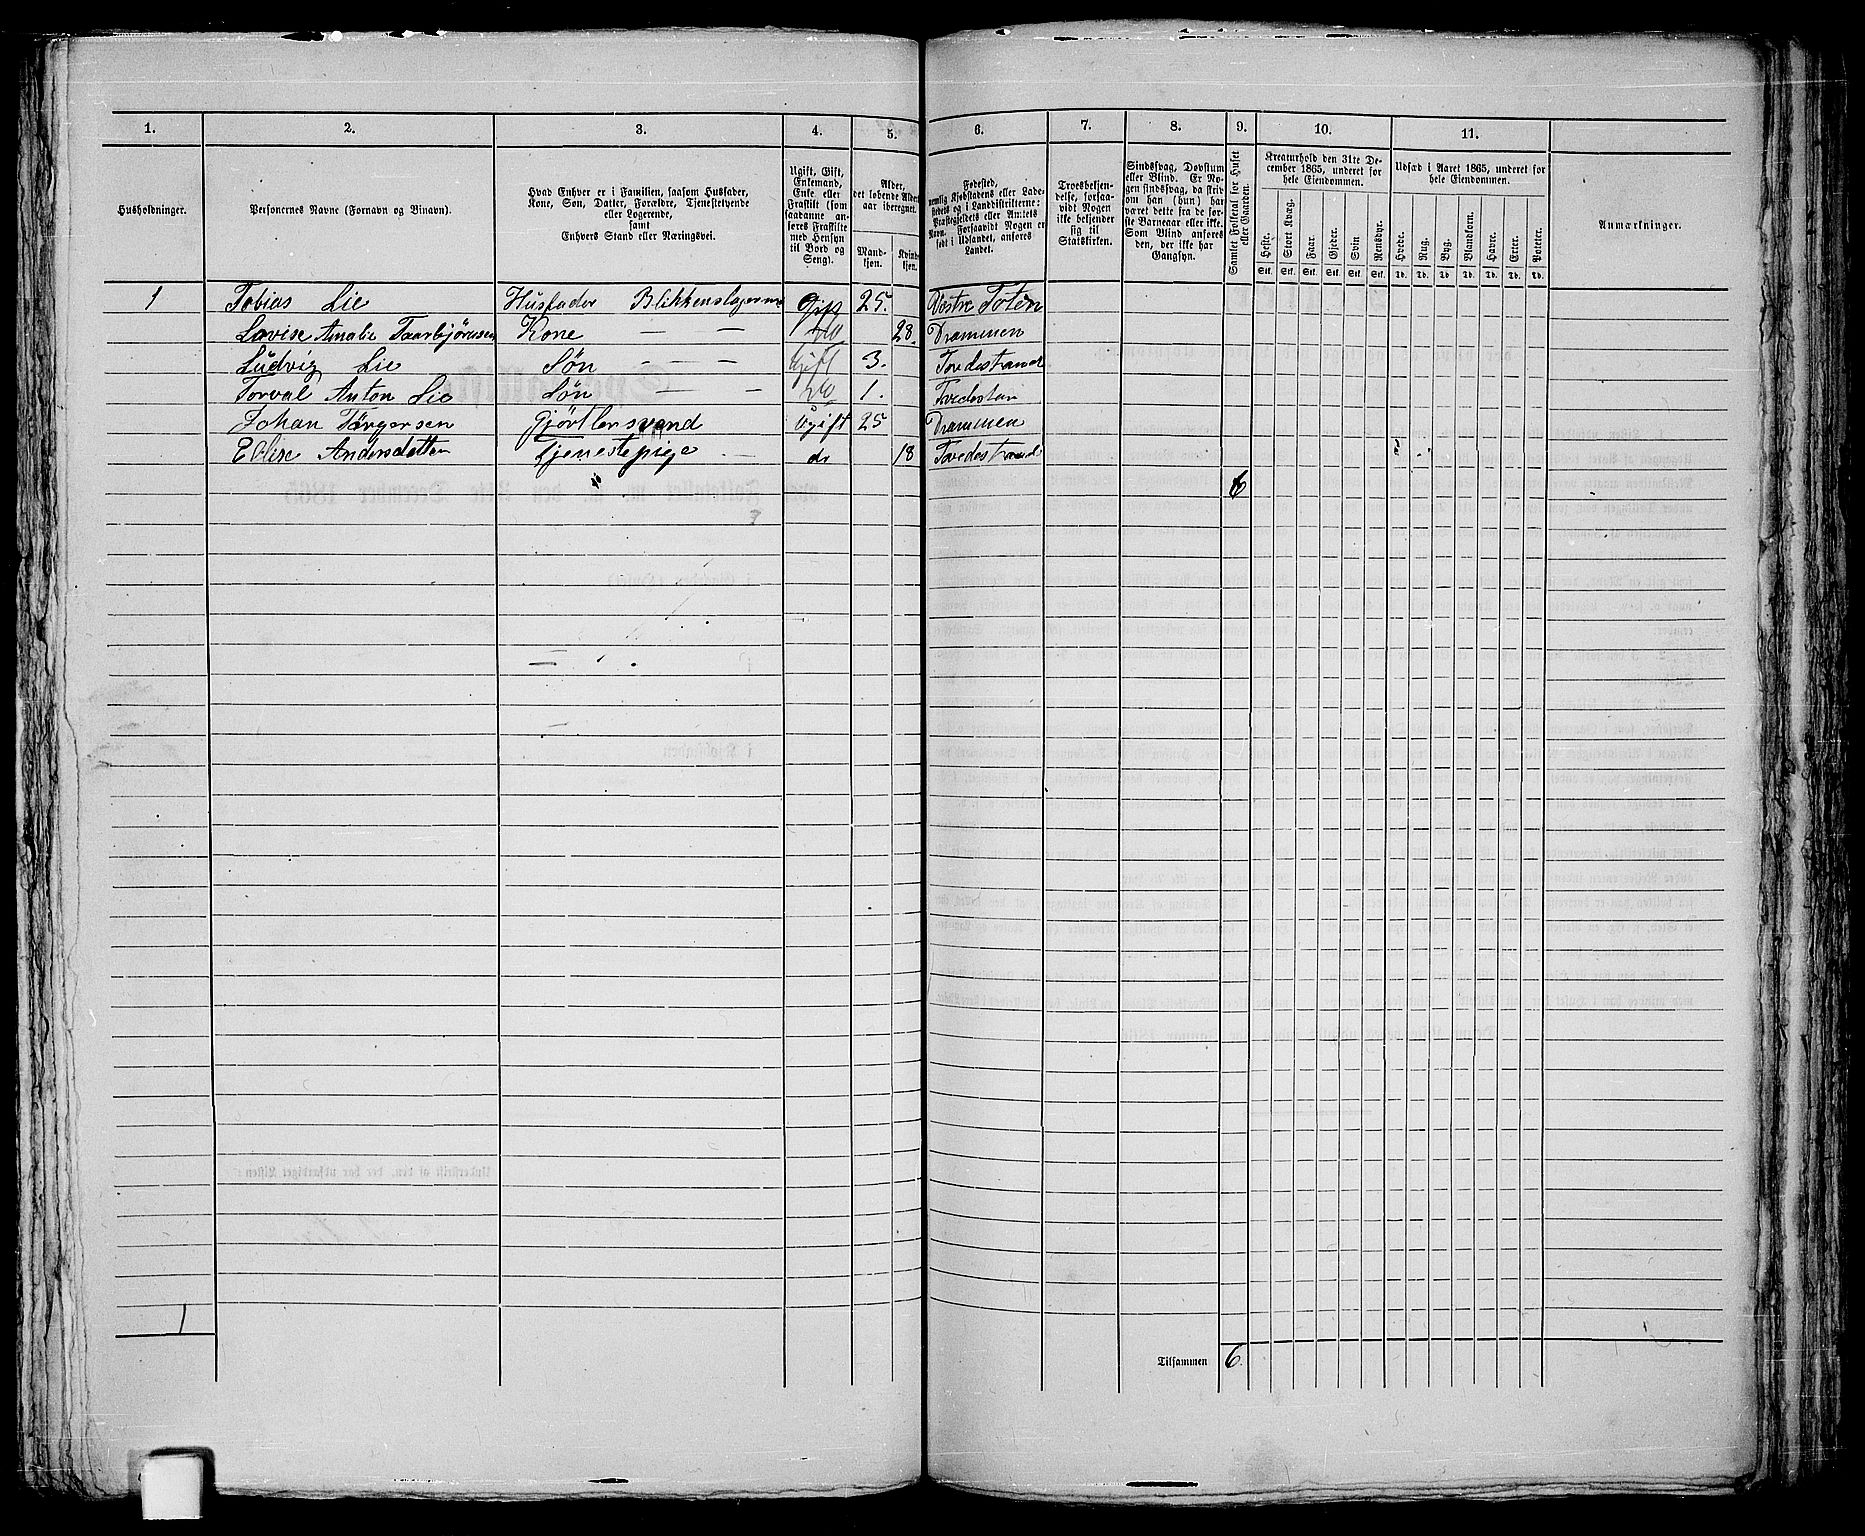 1. 2. 3. 4. 5. 6. 7. 8. 9. 10. 11.
Husholdninger.
Personernes Navne (Fornavn og Binavn).
Hvad Enhver er i Familien, saasom Husfader,
Kone, Søn, Datter, Forældre, Tjenestetyende
eller Logerende,
samt
Enhvers Stand eller Næringsvei.
Ugift, Gift,
Enkemand,
Enke eller
Fraskilt (som
saadanne an-
føres Fraskilte
med Hensyn
til Bord og
Seng).
Alder,
det løbende Alders-
aar iberegnet.
Mand-
kjøn.
Kvinde-
kjøn.
Fødested,
nemlig Kjøbstadens eller Lade-
stedets og i Landdistrikterne:
Præstegjeldets eller Amtets
Navn. Forsaavidt Nogen er
født i Udlandet, anføres
Landet.
Troesbekjen-
delse, forsaa-
vidt Nogen
ikke bekjender
sig til
Statskirken.
Sindssvag, Døvstum
eller Blind. Er No-
gen sindssvag, da skriv
om han (hun) har
været dette fra de før-
ste Barneaar eller ikke.
Som Blind anføres
den, der ikke har
Gangsyn.
Samlet Folketal for Huset
eller Gaarden.
Kreaturhold den 31te De-
cember 1865, underet for
hele Eiendommen.
Heste. Stort Kvæg. Faar. Gjeder. Svin. Rensdyr.
Stk. Stk. Stk. Stk. Stk. Stk.
Udsæd i Aaret 1865, underet for
hele Eiendommen.
Hvede. Rug. Byg. Blandkorn. Havre. Erter. Poteter.
Td. Td. Td. Td. Td. Td. Td.
Anmærkninger.
1 Tobias Lie Husfader Blikkenslager Gift 25. Vestre Toten
Lovise Amalie Taarbjørnsen Kone — — do 28. Drammen
Ludvig Lie Søn — — — Gift 3. Tvedestrand
Torval Anton Lie Søn — — do 1.
Johan Torgersen Gjørtlersvend Ugift 25 Drammen
Andersdatter Tjenestepige — do 18 Tvedestrand
6
1
Tilsammen 6.